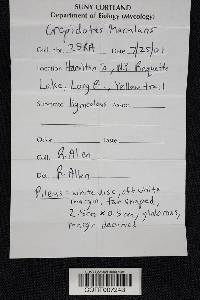 SUNY CORTLAND
Department of Biology (Mycology)
Crepidotus Maculans
Coll. No. 258A Date 7/25/01
Location Hamilton Co,
Lake, Long, Yellow trail
Substrate lignicolous
Coll. R. Allen
Det. R. Allen
Pileus = white disc, off white
margin, fan shaped,
2.5cm x 0.5cm, glabrous,